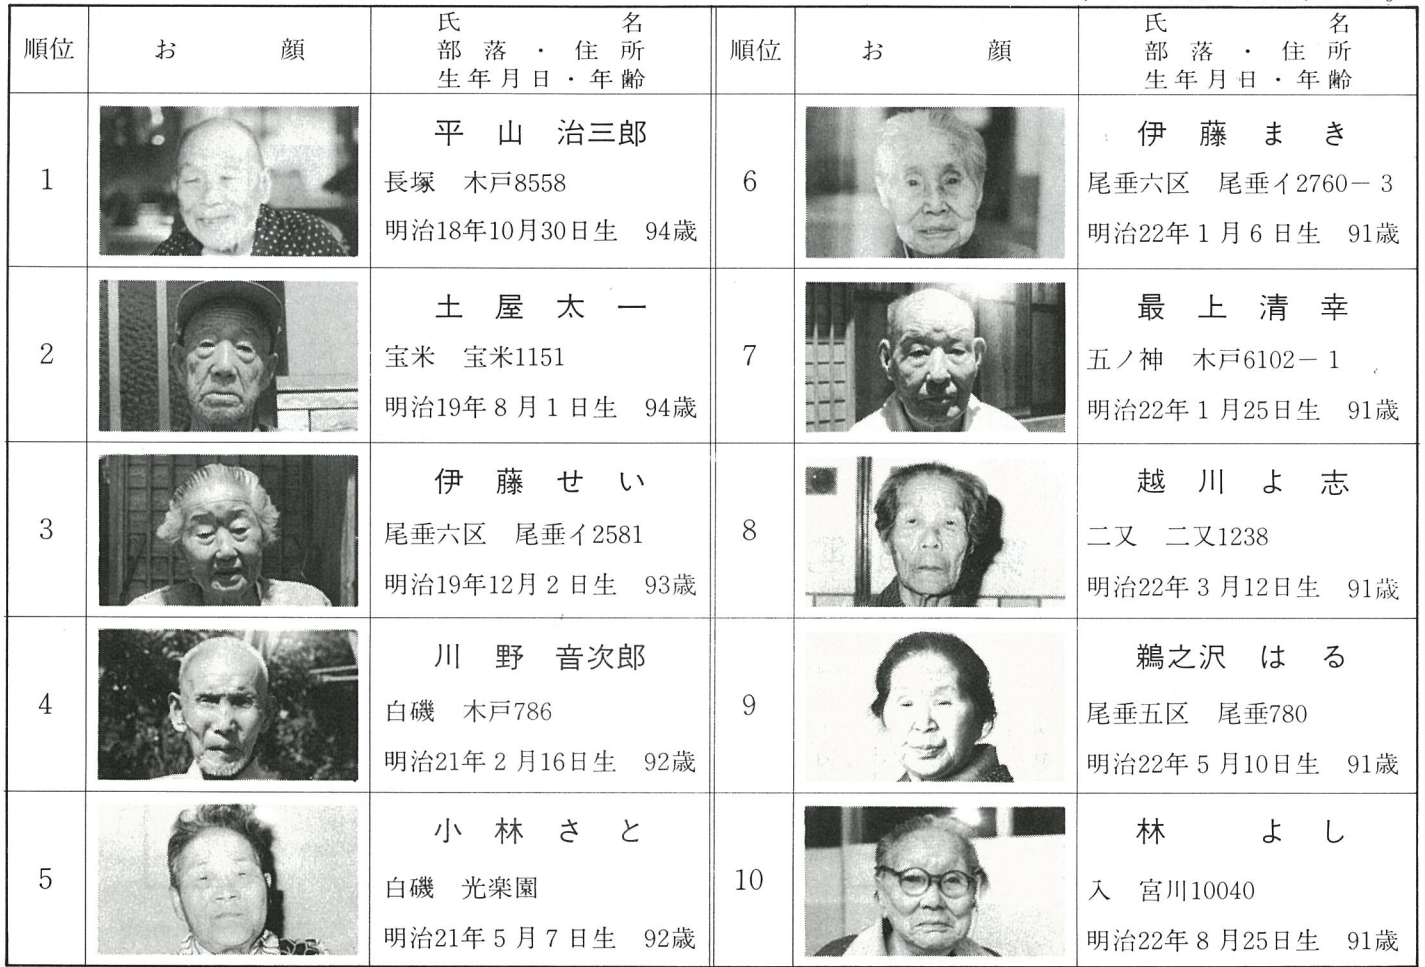 順位
お顔
氏名
部落・住所
生年月日・年齢
1
平山 治三郎
長塚 木戸8558
明治18年10月30日生 94歳
2
土屋太一
宝米 宝米1151
明治19年8月1日生 94歳
3
伊藤せい
尾垂六区 尾垂イ2581
明治19年12月2日生 93歳
4
川野 音次郎
白磯 木戸786
明治21年2月16日生 92歳
5
小林さと
白磯 光楽園
明治21年5月7日生 92歳
順位
お顔
氏名
部落・住所
生年月日・年齢
6
伊藤まき
尾垂六区 尾垂イ2760−3
明治22年1月6日生 91歳
7
最上清幸
五ノ神 木戸6102−1
明治22年1月25日生 91歳
8
越川よ志
二又 二又1238
明治22年3月12日生 91歳
9
鵜之沢 はる
尾垂五区 尾垂780
明治22年5月10日生 91歳
10
林 よし
入 宮川10040
明治22年8月25日生 91歳